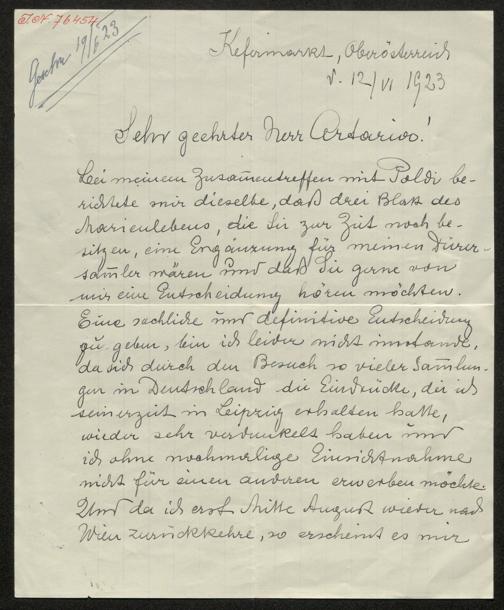 I.N. 76454
19/6 23
Kefermarkt, Oberösterreich
12/VI 1923
Sehr geehrter Herr Artaria!
Bei meinem Zusammentreffen mit Poldi be-
richtete mir dieselbe, daß drei Blatt des
Marienlebens, die Sie zur Zeit noch be-
sitzen, eine Ergänzung für meinen Dürer-
sammler wären und daß Sie gerne von
mir eine Entscheidung hören möchten.
Eine sachliche und definitive Entscheidung
zu geben, bin ich leider nicht imstande,
da sich durch den Besuch so vieler Sammlun-
gen in Deutschland die Eindrücke, die ich
seinerzeit in Leipzig erhalten hatte,
wieder sehr verdunkelt haben und
ich ohne nochmalige Einsichtnahme
nicht für einen anderen erwerben möchte.
Und da ich erst Mitte August wieder nach
Wien zurückkehre, so erscheint es mir